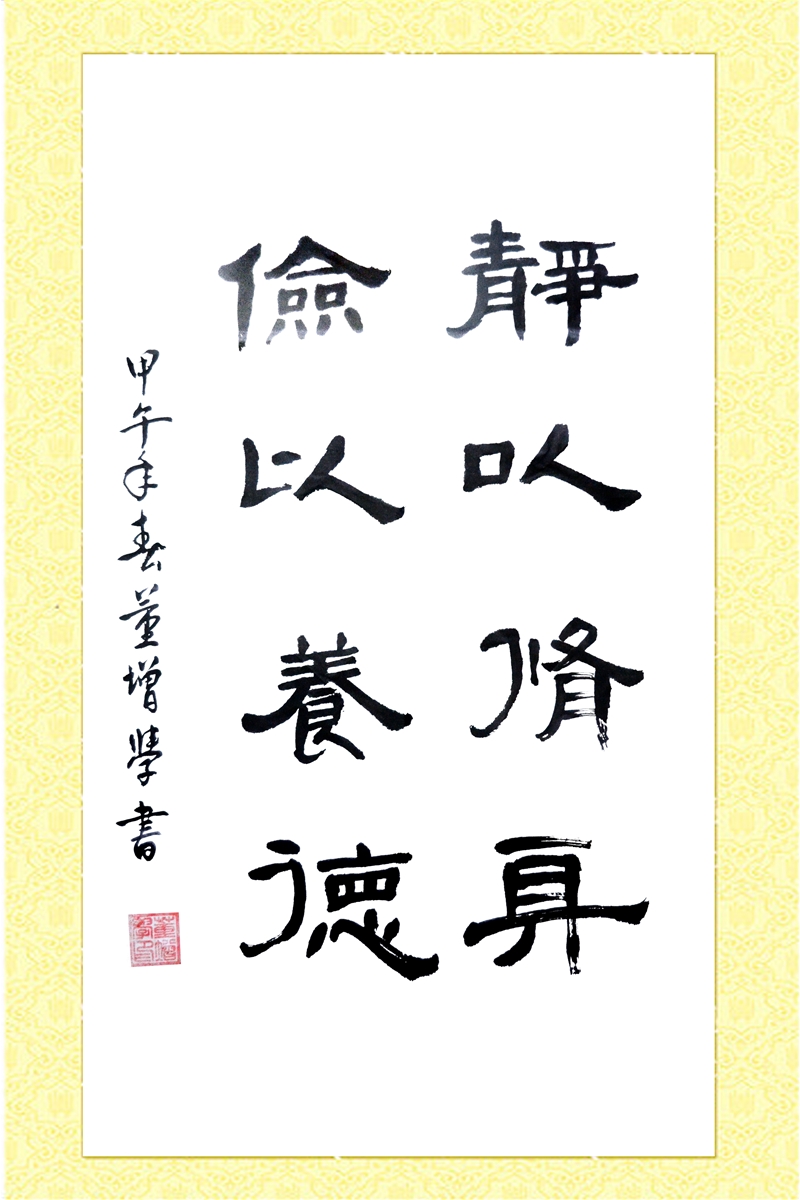 靜以脩身
儉以養德
甲午年春董增學書